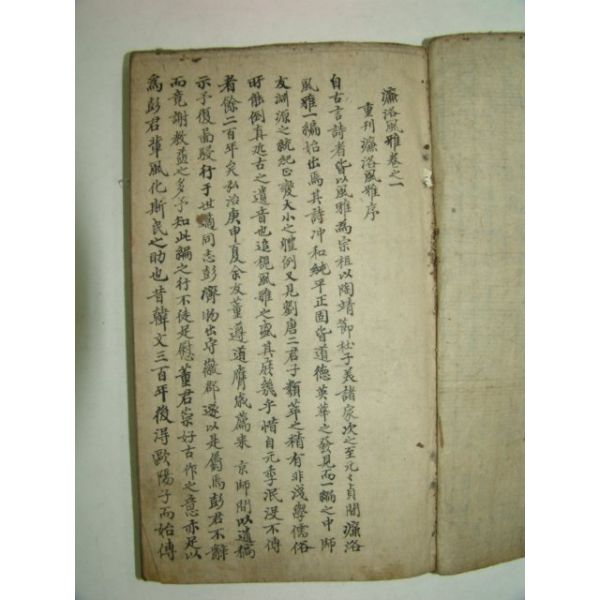 濂洛風雅卷之一
重刊濂洛風雅序
自古言詩者皆以風雅為宗祖以陶靖節杜子美諸家次之至元々貞間濂洛
風雅一編始出焉其詩冲和純平正固皆道德英華之發見而一編之中師
友淵源之統紀正變大小之體例又見劉唐二君子類萃之精有非淺學儒俗
所能倒真近古之遺音也追䂓風雅之盛其庶幾乎惜自元季泯沒不傳
者餘二百年矣弘治庚申夏余友董遵道膺歲薦來京師間以遺稿
示予復圖鋟行于世適同志彭濟物出守徽郡遂以是屬焉彭君不辭
而竟謝教益之多予知此編之行不徒足慰董君崇好古作之意亦足以
為彭君輩風化斯民之助也昔韓文三百年後得歐陽子而始傳